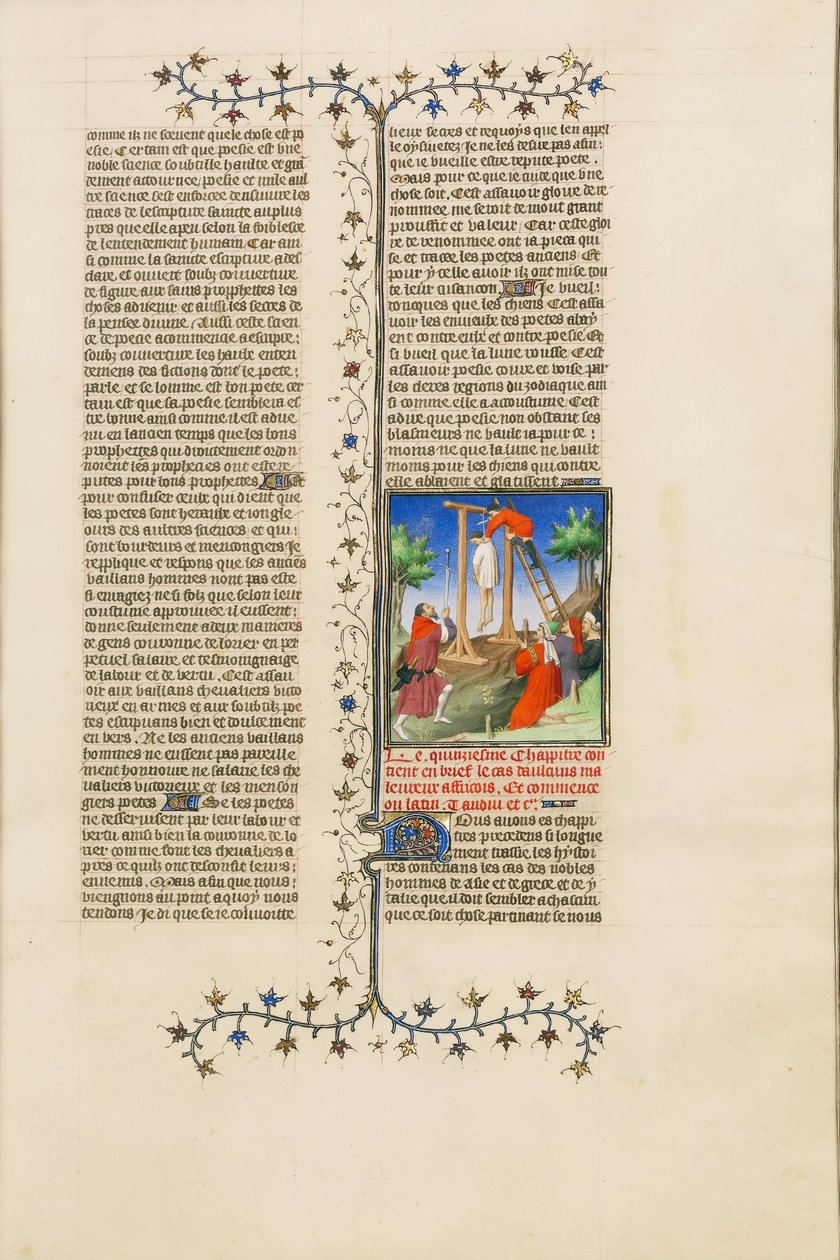 comme ilz ne sceuent que le chose est po
esie. Certain est que poesie est vne
noble science soubtille haulte et gra
dement actournee. poesie et nulle aul
tre science sest enforcee densuiure les
traces de lescripture saincte au plus
pres que elle a peu selon la foiblesce
de lentendement humain. Car ain
si comme la saincte escripture a des
claire et ouuert soubz couuerture
de figure aux sains prophettes les
choses aduenir et aussi les secres de
la pensee diuine. Aussi ceste scien
ce de poesie a commencie a escripre
soubz couuerture les haulx enten
demens des fictions dont le poete
parle. et se lomme est bon poete cer
tain est que sa poesie semblera es
tre bonne ainsi comme il est adue
nu en lancien temps que les bons
prophettes qui droictement ordon
noient les prophecies ont este re
putes pour bons prophettes. Et
pour confuser ceulx qui dient que
les poetes sont heraulx et iongle
ours des aultres sciences et qui
sont bourdeurs et mencongiers Je
repplique et respons que les anciens
vaillans hommes nont pas este
si enragiez ne si folz que selon leur
coustume approuuee il eussent
donne seulement a deux manieres
de gens couronne de lorier en per
petuel salaire et tesmoingnaige
de labour et de vertu. Cest assau
oir aux vaillans cheualiers victo
rieux en armes et aux soubtilz poe
tes escripuans bien et doulcement
en vers. Ne les anciens vaillans
hommes ne eussent pas pareille
ment honnoure ne salarie les che
ualiers victorieux et les menson
giers poetes. Se les poetes
ne desseruissent par leur labour et
vertu ainsi bien la couronne de lo
rier comme font les cheualiers a
pres ce quilz ont desconfit leurs
ennemis. Mais afin que nous
viengnons au point a quoy nous
tendons Je di que se ie couuoitte
lieux secres et requoys que len appel
le oysiuetez Je ne les desire pas afin
que ie vueille estre repute poete.
Mais pour ce que ie cuide que vne
chose soit. Cest assauoir gloire de re
nommee me seroit de mout grant
prouffit et valeur. Car ceste gloi
re de renommee ont ia pieca qui
se et tracee les poetes anciens. Et
pour ycelle auoir ilz ont mise tou
te leur cusancon. Je vueil
doncques que les chiens Cest assa
uoir les enuieulx des poetes abay
ent contre eulx et contre poesie Et
si vueil que la lune rousse Cest
assauoir poesie coure et voise par
les cleres regions du zodiaque ain
si comme elle a acoustume. Cest
a dire que poesie non obstant ses
blasmeurs ne vault ia pour ce
moins ne que la lune ne vault
moins pour les chiens qui contre
elle abbaient et glatissent.
Le. quinziesme Chappitre con
tient en brief le cas daulcuns ma
leureux affricois. Et commence
ou latin. Tandui et cetera.
Nous auons es chappi
tres precedens si longue
ment traissie. les hystoi
res contenans les cas des nobles
hommes de asie et de grece et de y
talie que il doit sembler a chascun
que ce soit chose partinant se nous